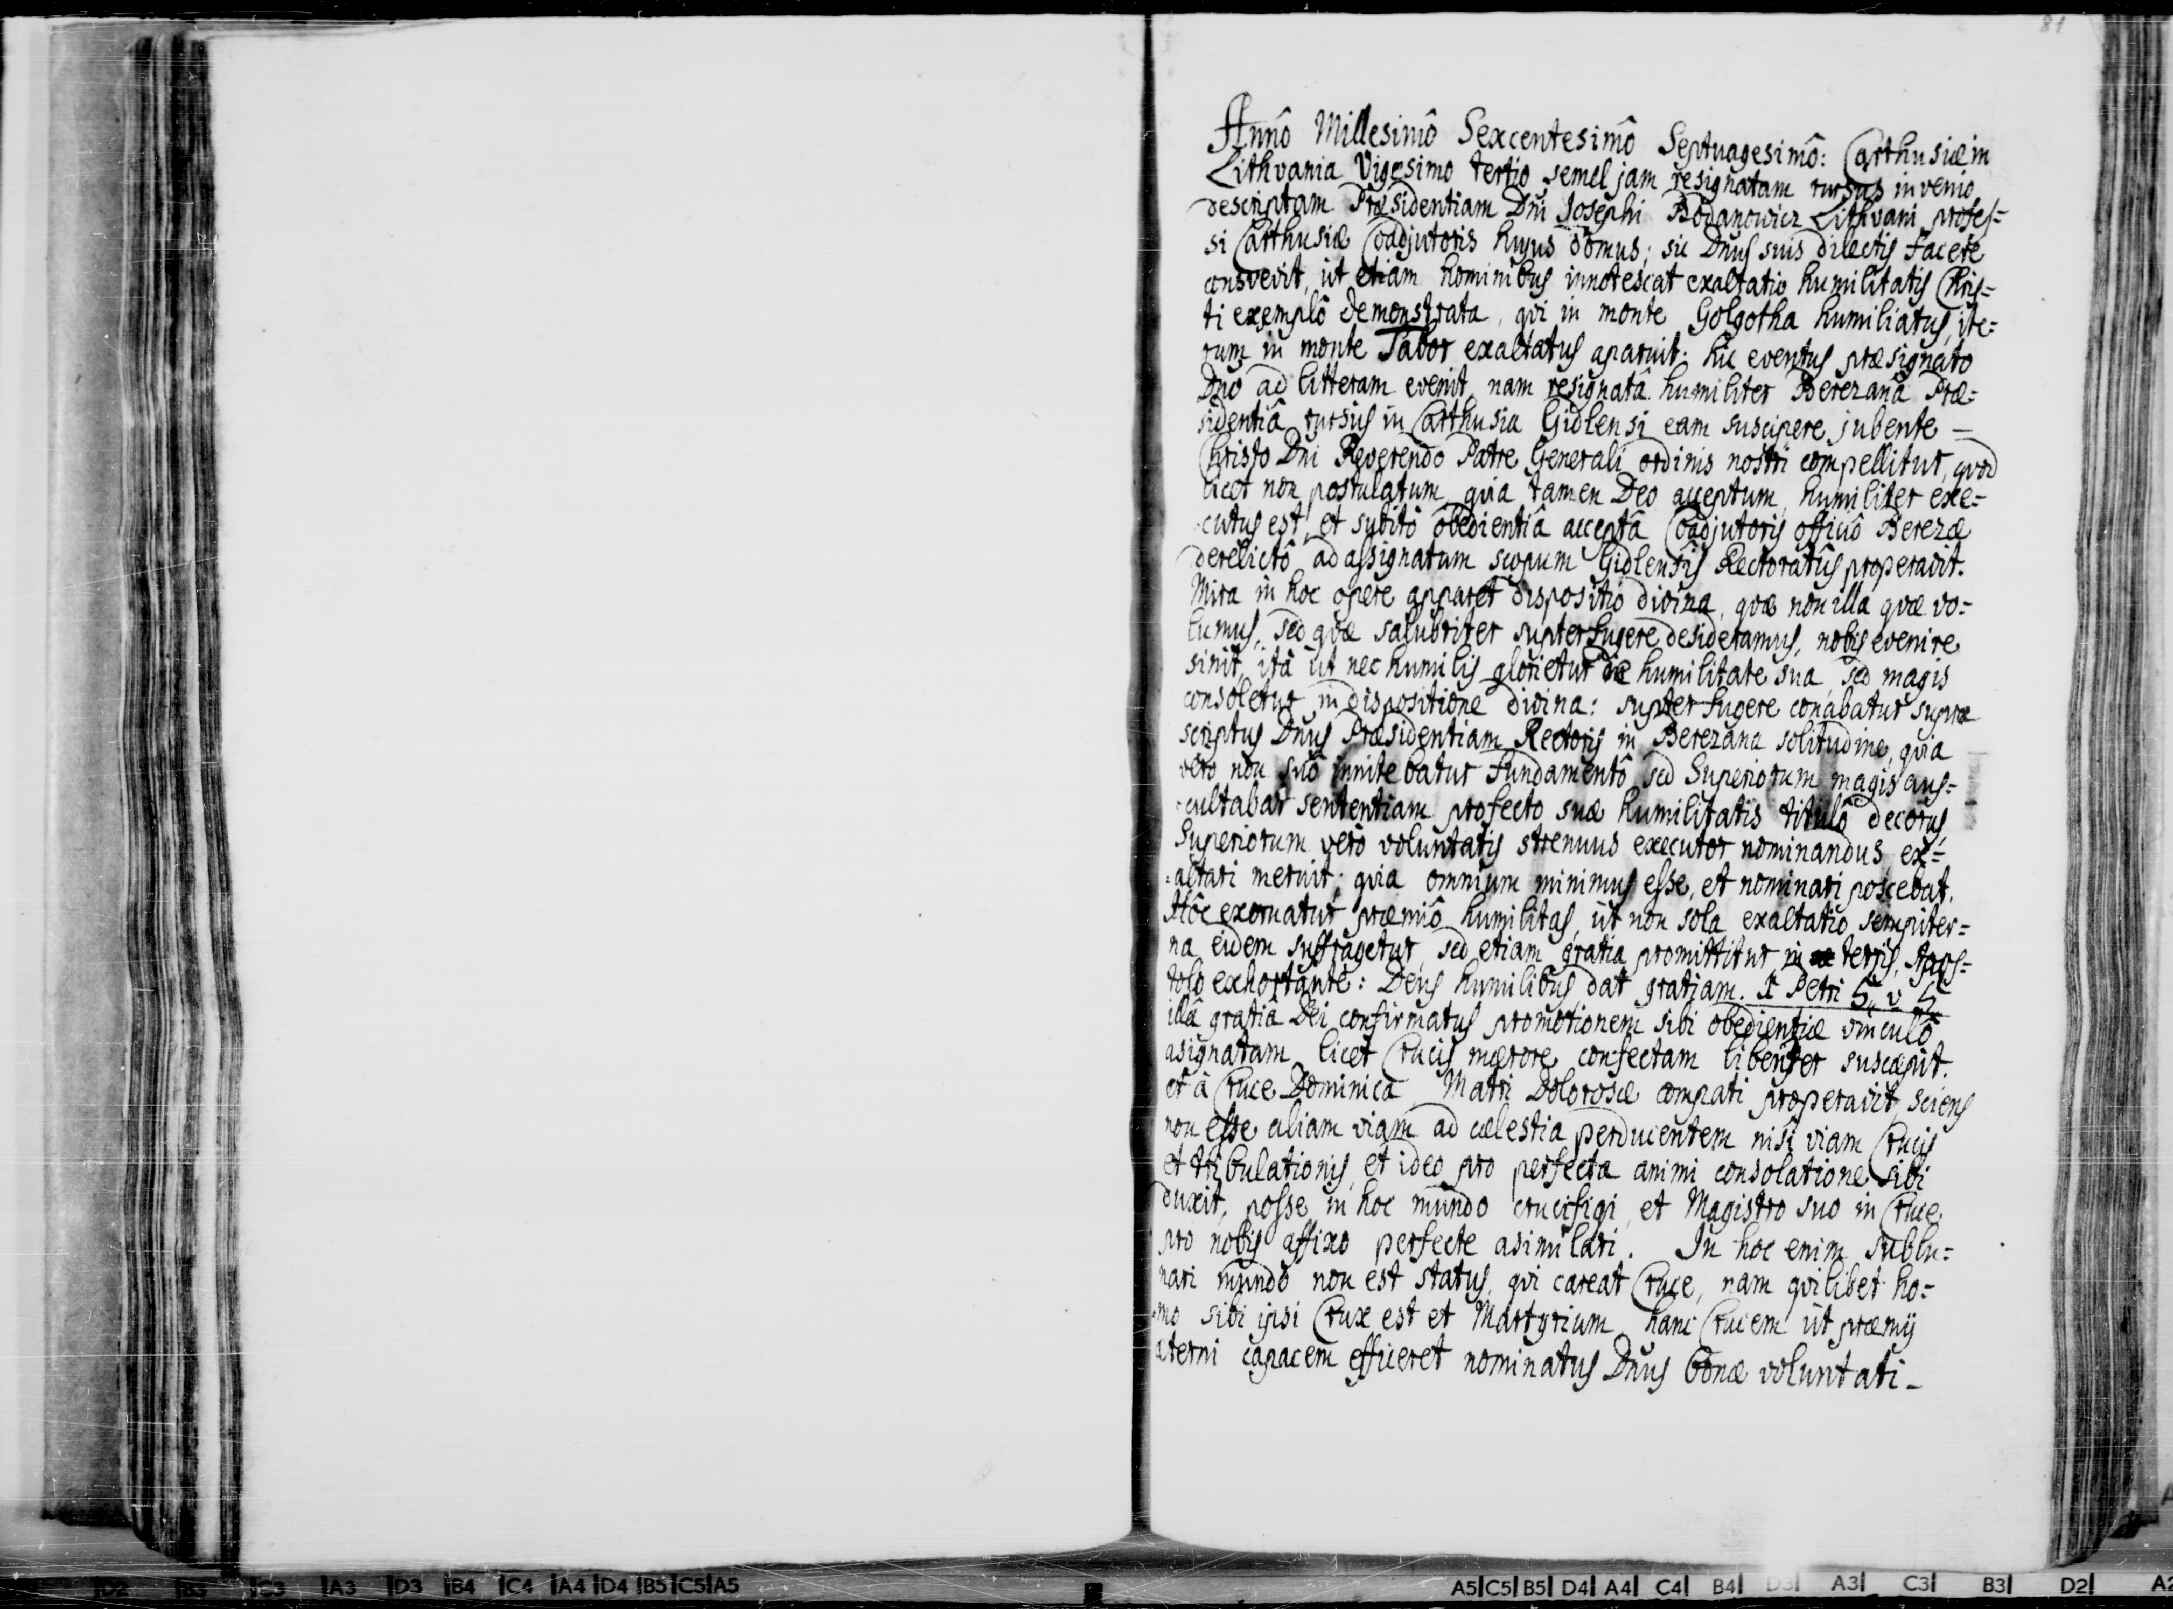 81
Annô Millesimô Sexcentesimô Septuagesimô: Carthusiæ in
Lithvania Vigesimo tertio semel jam resignatam rursus invenio
descriptam Præsidentiam Dni Josephi Bodanowicz Lithvani profes=
si Carthusiæ Coadjutoris hujus domus; sic Dnus suis dilectis facere
consvevit, ut etiam hominibus innotescat exaltatio humilitatis Chris=
ti exemplô demonstrata, qvi in monte Golgotha humiliatus, ite=
rum in monte Tabor exaltatus aparuit: hic eventus præsignato
Dno ad litteram evenit, nam resignatâ humiliter Berezanâ Præ=
sidentiâ rursus in Carthusia Gidlensi eam suscipere jubente =
Christo Dni Reverendo Patre Generali ordinis nostri compellitur, qvod
licet non postulatum, qvia tamen Deo acceptum, humiliter exe=
cutus est, et subitò obedientiâ acceptâ Coadjutoris officiô Berezæ
derelictô ad assignatum scopum Gidlensis Rectoratûs properavit.
Mira in hoc opere apparet dispositio divina, qvæ non illa qvæ vo=
lumus, sed qvæ salubriter supterfugere desideramus, nobis evenire
sinit, itâ ut nec humilis glorietur de humilitate sua, sed magis
consoletur in dispositione divina: supterfugere conabatur supra
scriptus Dnus Præsidentiam Rectoris in Berezana solitudine, qvia
vero non suô innitebatur fundamentô sed Superiorum magis aus=
cultabat sententiam profecto suæ humilitatis titulô decorus,
Superiorum verò voluntatis strenuus executor nominandus ex=
=altari meruit; qvia omnium minimus esse, et nominari poscebat.
Hôc exornatur præmiô humilitas, ut non sola exaltatio sempiter=
na eidem suffragetur, sed etiam gratia promittitur in terris, Apos=
tolo exhortante: Deus humilibus dat gratiam. 1 Petri 5. v 5
illâ gratia Dei confirmatus promotionem sibi obedientiæ vinculô
asignatam licet Crucis mærore confectam libenter suscæpit.
et â Cruce Dominica Matri Dolorosæ compati properavit, sciens
non esse aliam viam ad cælestia perducentem nisi viam Crucis
et tribulationis, et ideo pro perfecta animi consolatione sibi
duxit, posse in hoc mundo crucifigi, et Magistro suo in Cruce
pro nobis affixo perfecte asimilari. In hoc enim sublu=
nari mundo non est status, qvi careat Cruce, nam qvilibet ho=
mo sibi ipsi Crux est et Martyrium, hanc Crucem ut præmij
æterni capacem efficeret nominatus Dnus bonæ voluntati_